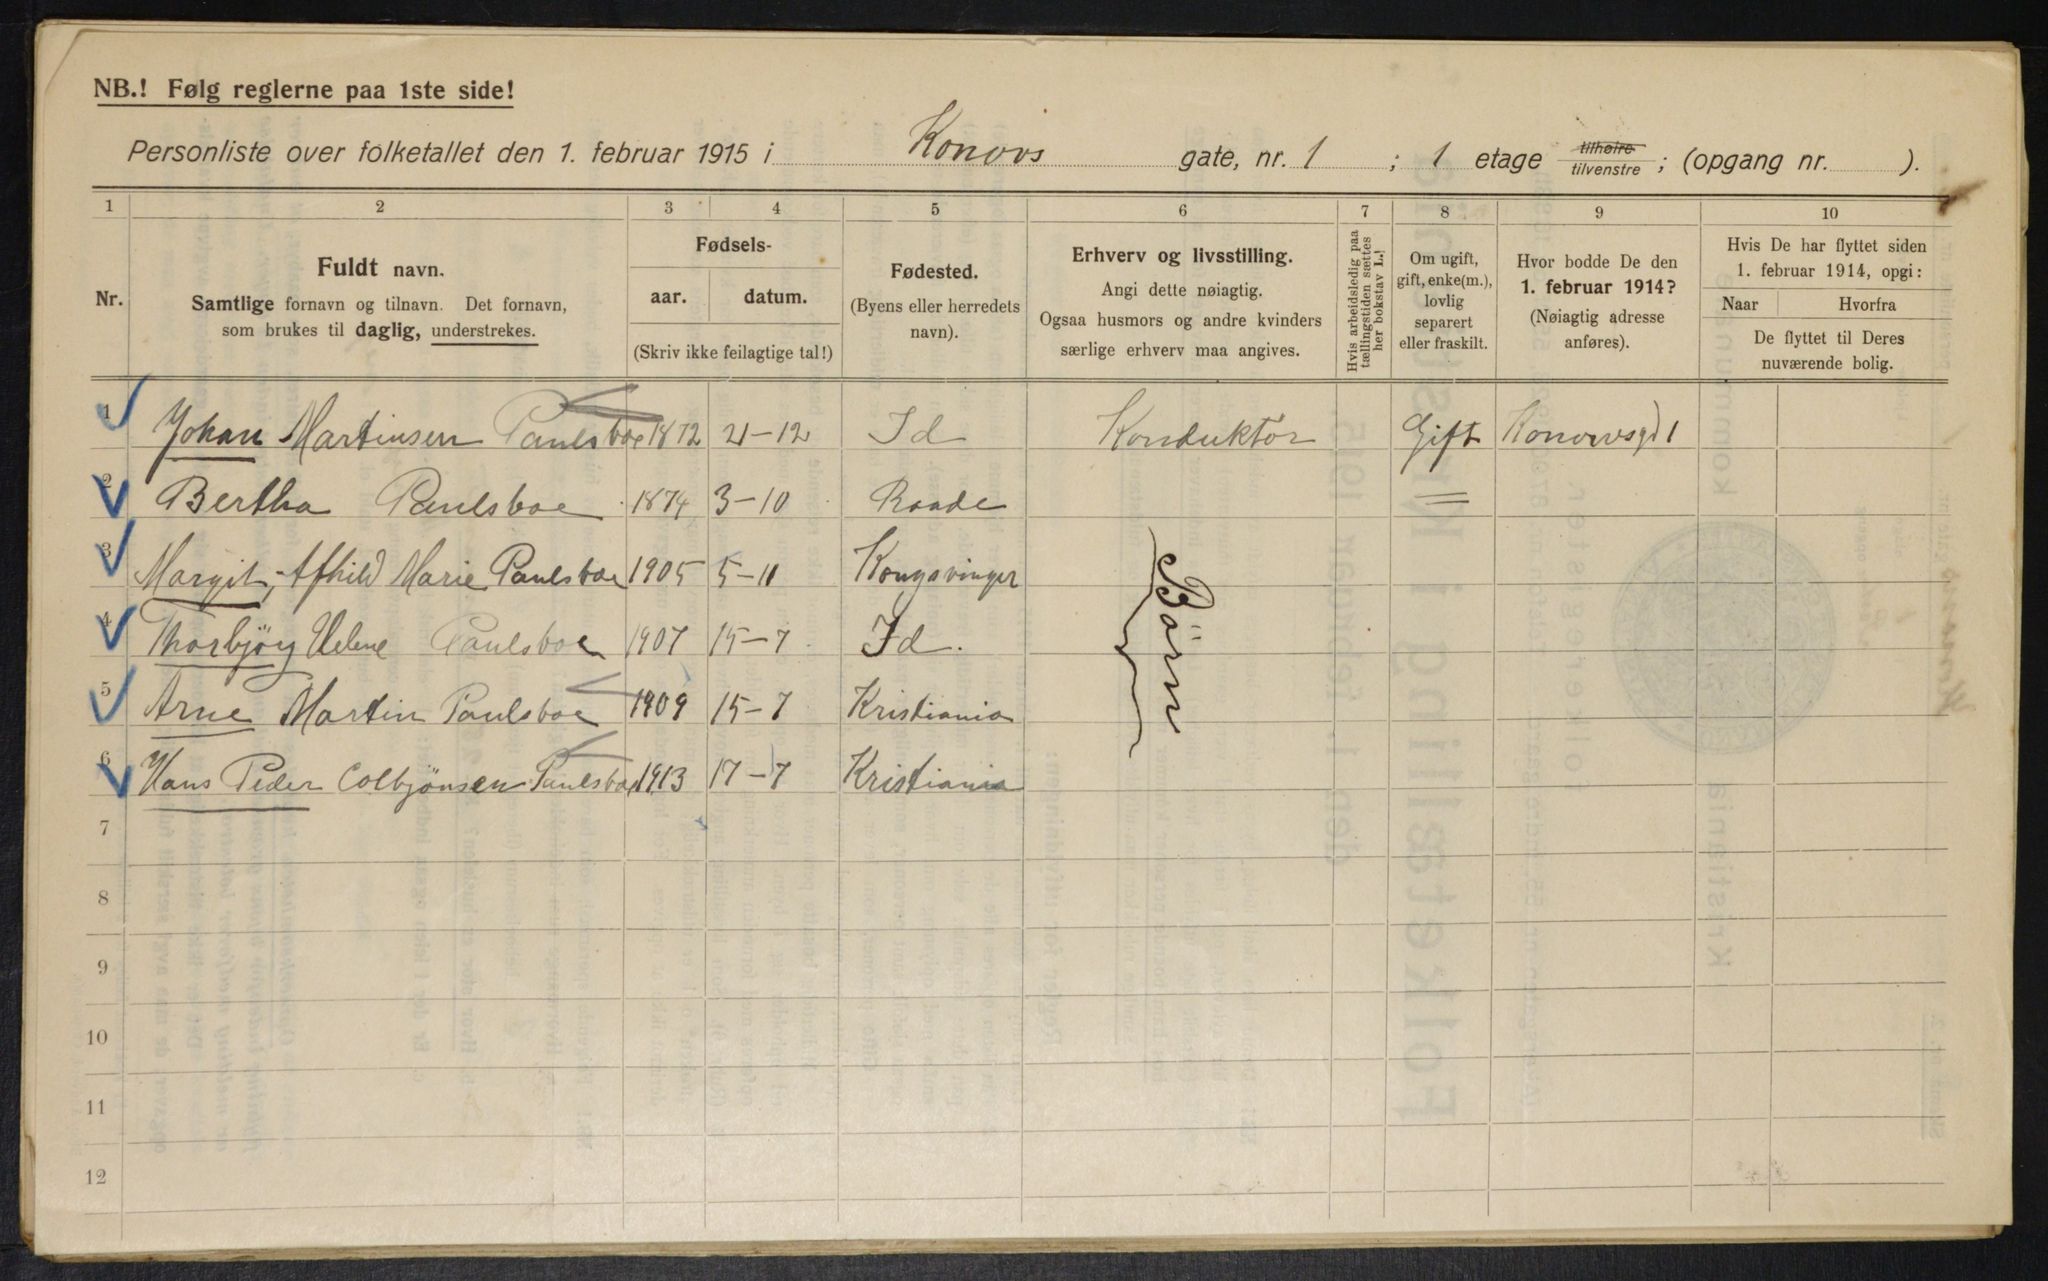 NB.! Følg reglerne paa 1ste side!
Personliste over folketallet den 1. februar 1915 i Konows gate, nr. 1 ; 1 etage tilhøire tilvenstre ; (opgang nr. ).
1 2 3 4 5 6 7 8 9 10
Nr.
Fuldt navn.
Samtlige fornavn og tilnavn. Det fornavn,
som brukes til daglig, understrekes.
Fødsels-
aar. datum.
(Skriv ikke feilagtige tal!)
Fødested.
(Byens eller herredets
navn).
Erhverv og livsstilling.
Angi dette nøiagtig.
Ogsaa husmors og andre kvinders
særlige erhverv maa angives.
Hvis arbeidsledig paa
tællingstiden sættes
her bokstav L.!
Om ugift,
gift, enke(m.),
lovlig
separert
eller fraskilt.
Hvor bodde De den
1. februar 1914?
(Nøiagtig adresse
anføres).
Hvis De har flyttet siden
1. februar 1914, opgi:
Naar Hvorfra
De flyttet til Deres
nuværende bolig.
1 Johan Martinsen Paulsboe 1872 21-12 Id Konduktör Gift Konowsgd 1
2 Bertha Paulsboe 1874 3-10 Raade =
3 Margit, Afhild Marie Paulsboe 1905 5-11 Kongsvinger
4 Thorbjörg Helene Paulsboe 1907 15-7 Id.
Börn
5 Arne Martin Paulsboe 1909 15-7 Kristiania
6 Hans Peder Colbjönsen Paulsboe 1913 17-7 Kristiania
7
8
9
10
11
12